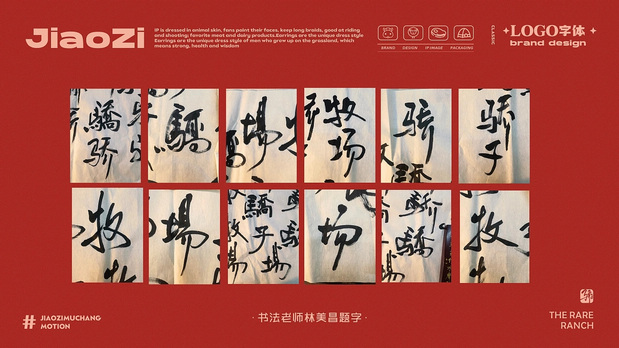 JiaoZi
IP is dressed in animal skin, fans paint their faces, keep long braids, good at riding
and shooting; favorite meat and dairy products.Earrings are the unique dress style
Earrings are the unique dress style of men who grew up on the grassland, which
means strong, health and wisdom
BRAND
DESIGN
IP IMAGE
PACKAGING
CLASSIC
LOGO字体
brand design
驕
骄
驕
場
牧
场
骄
骄
子
牧
場
驕
子
牧
場
場
场
骄
驕
牧
·书法老师林美昌题字·
# JIAOZIMUCHANG
MOTION
THE RARE
RANCH